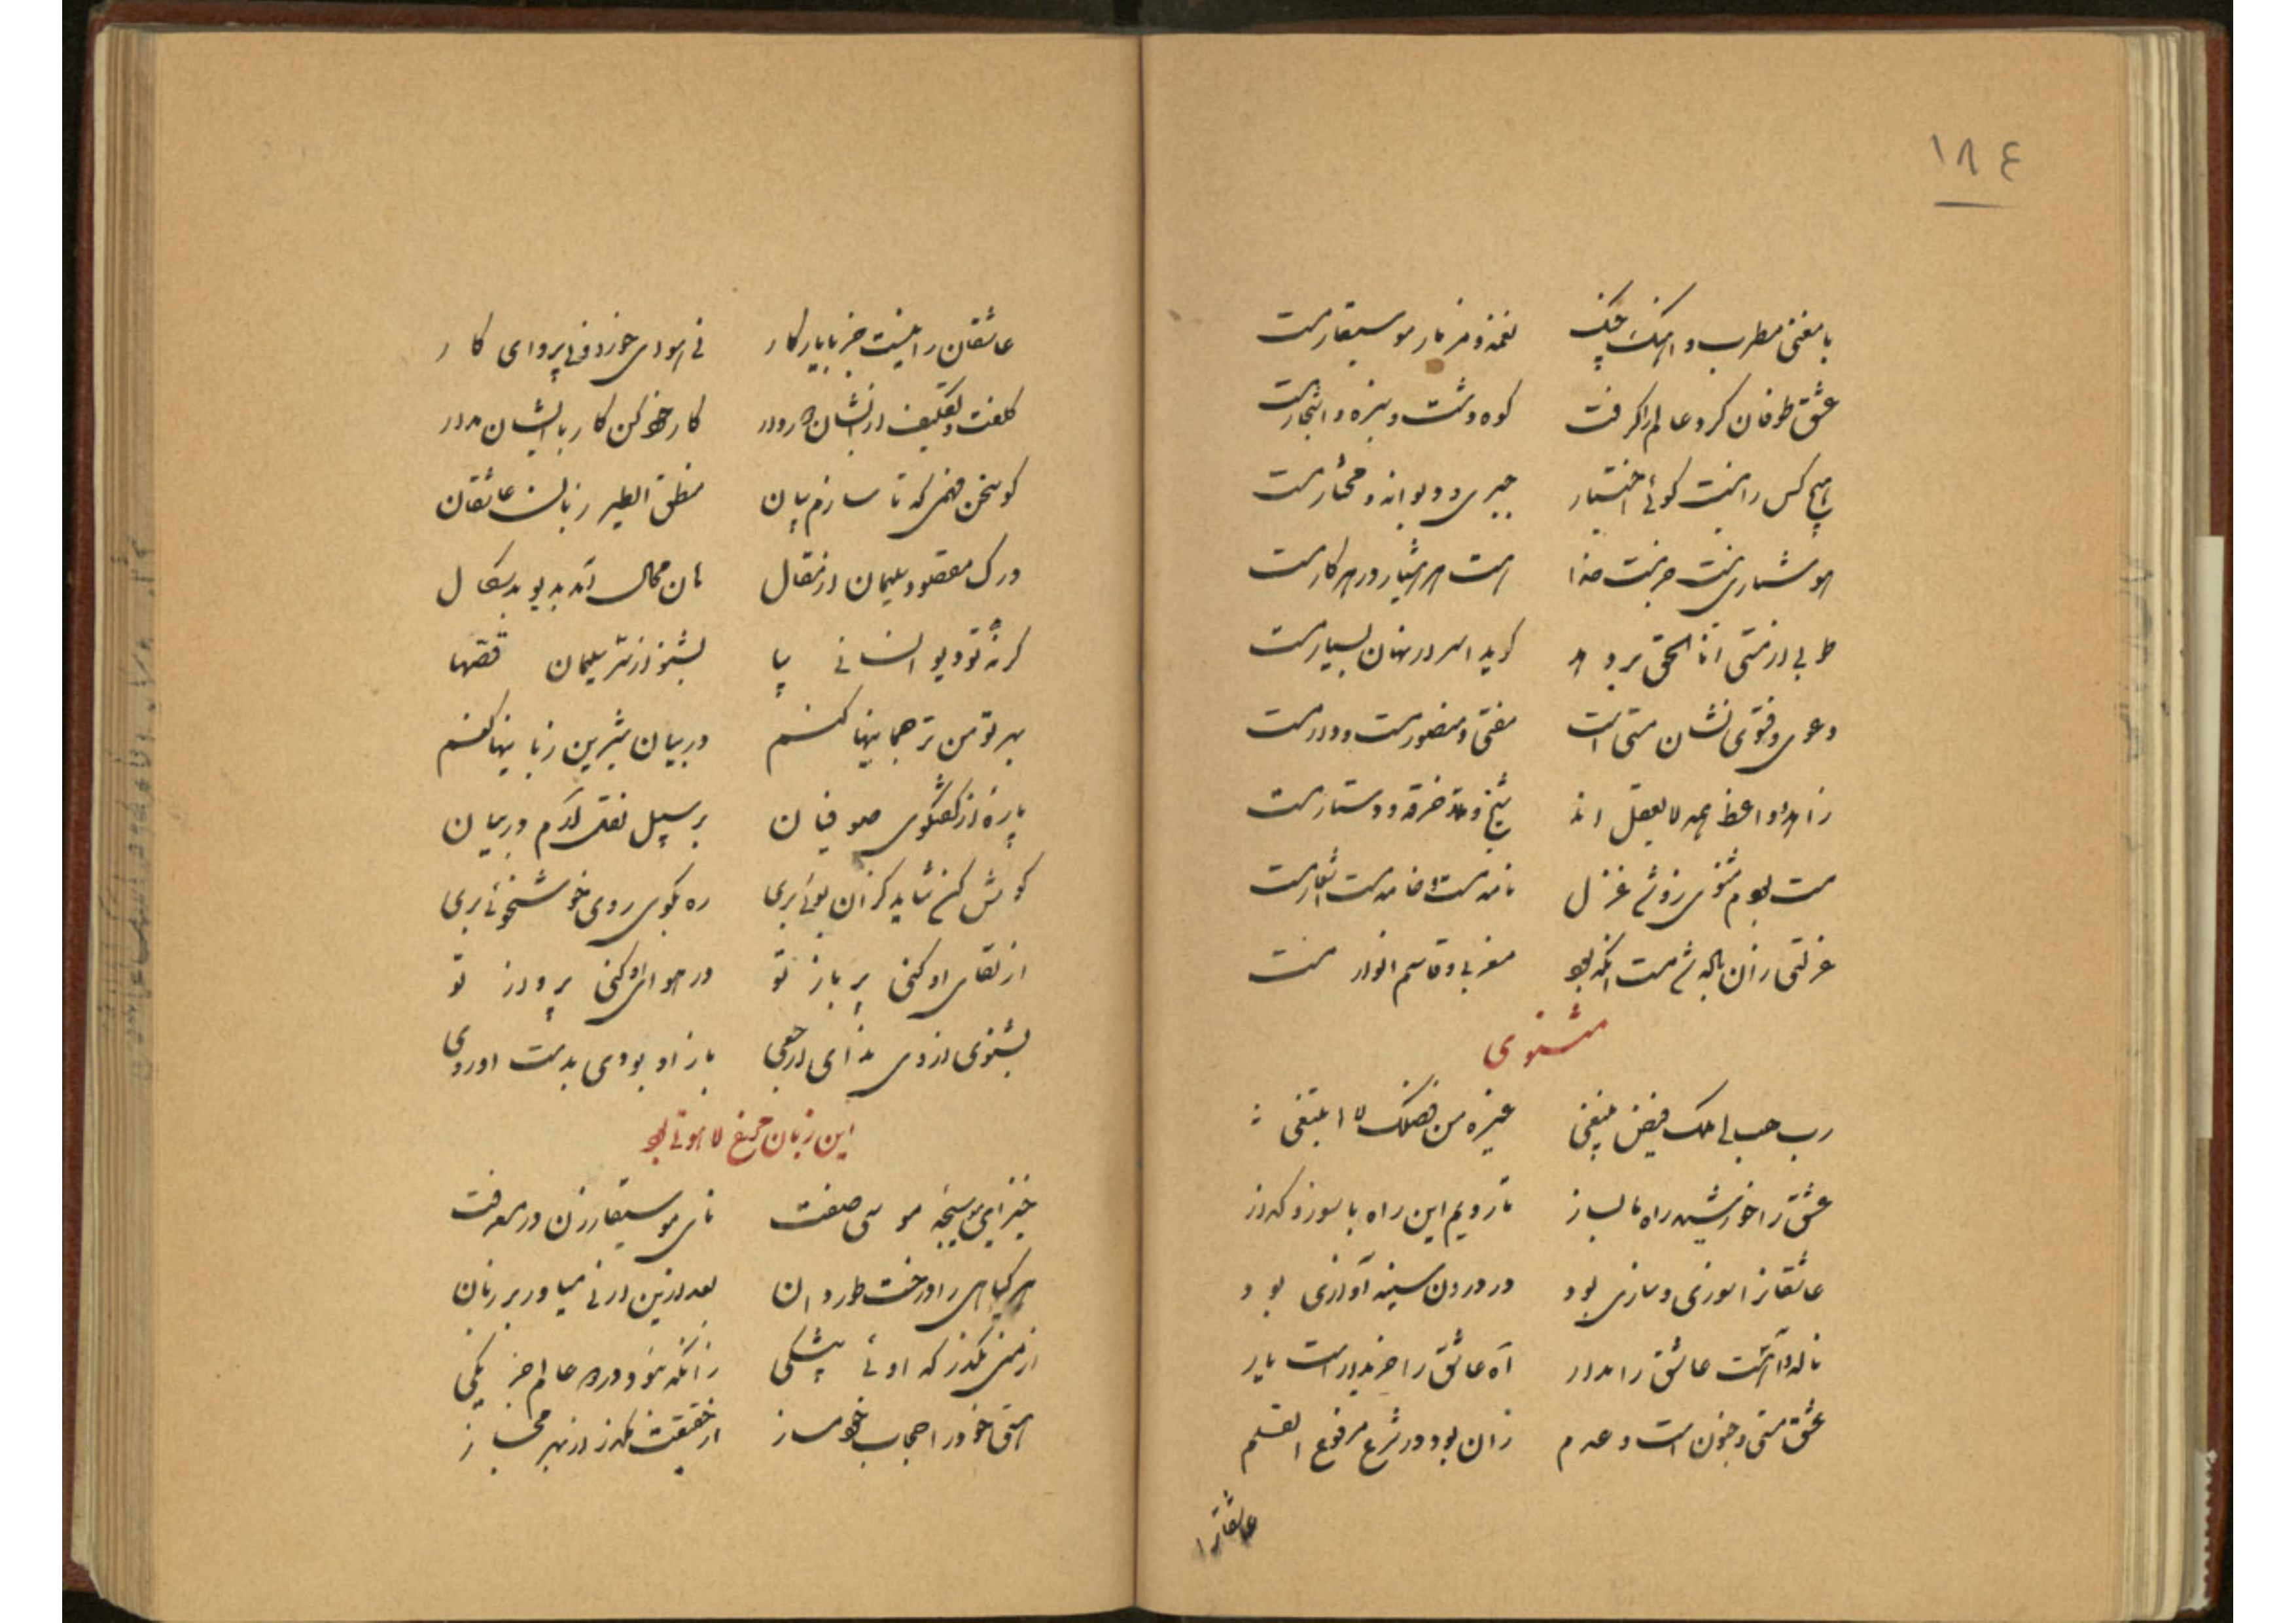 ١٨٤
با مغنی مطرب و آهنگ چنگ نغمه و مزمار موسیقار مست
عشق طوفان کرد و عالم را گرفت کوه و دشت و سبزه و اشجار مست
هیچ کس را نیست گوئی اختیار جبری و دیوانه و مختار مست
هوشیاری نیست جز مست خدا مست هر هشیار در هر کار مست
طوبی از مستی انا الحق برد گوید اسرار نهان بسیار مست
دعوی و فتوی نشان مستی است مفتی و منصور مست و دار مست
زاهد و واعظ همه لایعقل اند شیخ و خرقه و دستار مست
مست بودم مثنوی زو شد غزل نامه مست و خامه مست اشعار مست
عزلتی زان باله شد مست انکه بود مغربی و قاسم انوار مست
مثنوی
رب هب لی ملک فیض ینبغی غیره من فضلک لا ابتغی
عشق را خورشید راه ما بساز تا رویم این راه با سوز و گداز
عاشقانرا سوزی و سازی بود در درون سینه آوازی بود
ناله و آهست عاشق را مدار آه عاشق را خریدار است یار
عشق مستی و جنون است و عدم زان بود در شرع مرفوع القلم
عاشقانرا
عاشقان را نیست جز با یار کار نی سودای خورد و نی پروای کار
کلفت و تکلیف از ایشان دور دار کار خود کن کار با ایشان مدار
کو سخن فهمی که تا سازم بیان منطق الطیر زبان عاشقان
درک مقصود سلیمان از مقال هان محال آمد بدیو بدسگال
گر نهٔ تو دیو انسانی بیا بشنو از سر سلیمان قصها
بهر تو من ترجمانیها کنم در بیان شیرین زبانیها کنم
پارهٔ از گفتگوی صوفیان بر سبیل نقل آرم در بیان
گوش کن شاید کزان بوئی بری ره بکوی روی خوشخوئی بری
از لقای او کنی پر باز تو در هوای او کنی پرواز تو
بشنوی از وی ندای ارجعی باز او بودی بدست اوردی
این زبان مرغ لاهوتی بود
خیز ای موسیچه موسی صفت نای موسیقار زن در معرفت
هر گیاهی را درخت طور دان بعد ازین ارنی میاور بر زبان
از منی بگذر که اوئی بیشکی زانکه نبود در دو عالم جز یکی
هستی خود را حجاب خود مساز از حقیقت مگذر از بهر مجاز